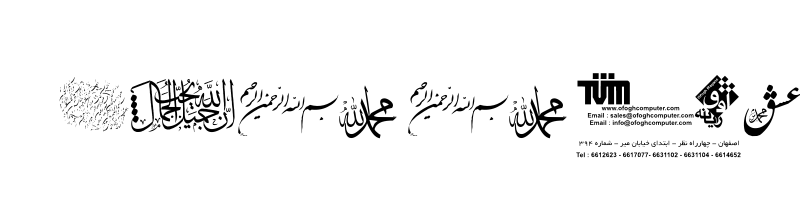 عشق
محمد
افق زرینه
TUM
www.ofoghcomputer.com
Email : sales@ofoghcomputer.com
Email : info@ofoghcomputer.com
اصفهان - چهارراه نظر - ابتدای خیابان میر - شماره ۳۹۴
Tel : 6612623 - 6617077- 6631102 - 6631104 - 6614652
محمد الله بسم الله الرحمن الرحیم
محمد الله بسم الله الرحمن الرحیم
ان الله جمیل یحب الجمال